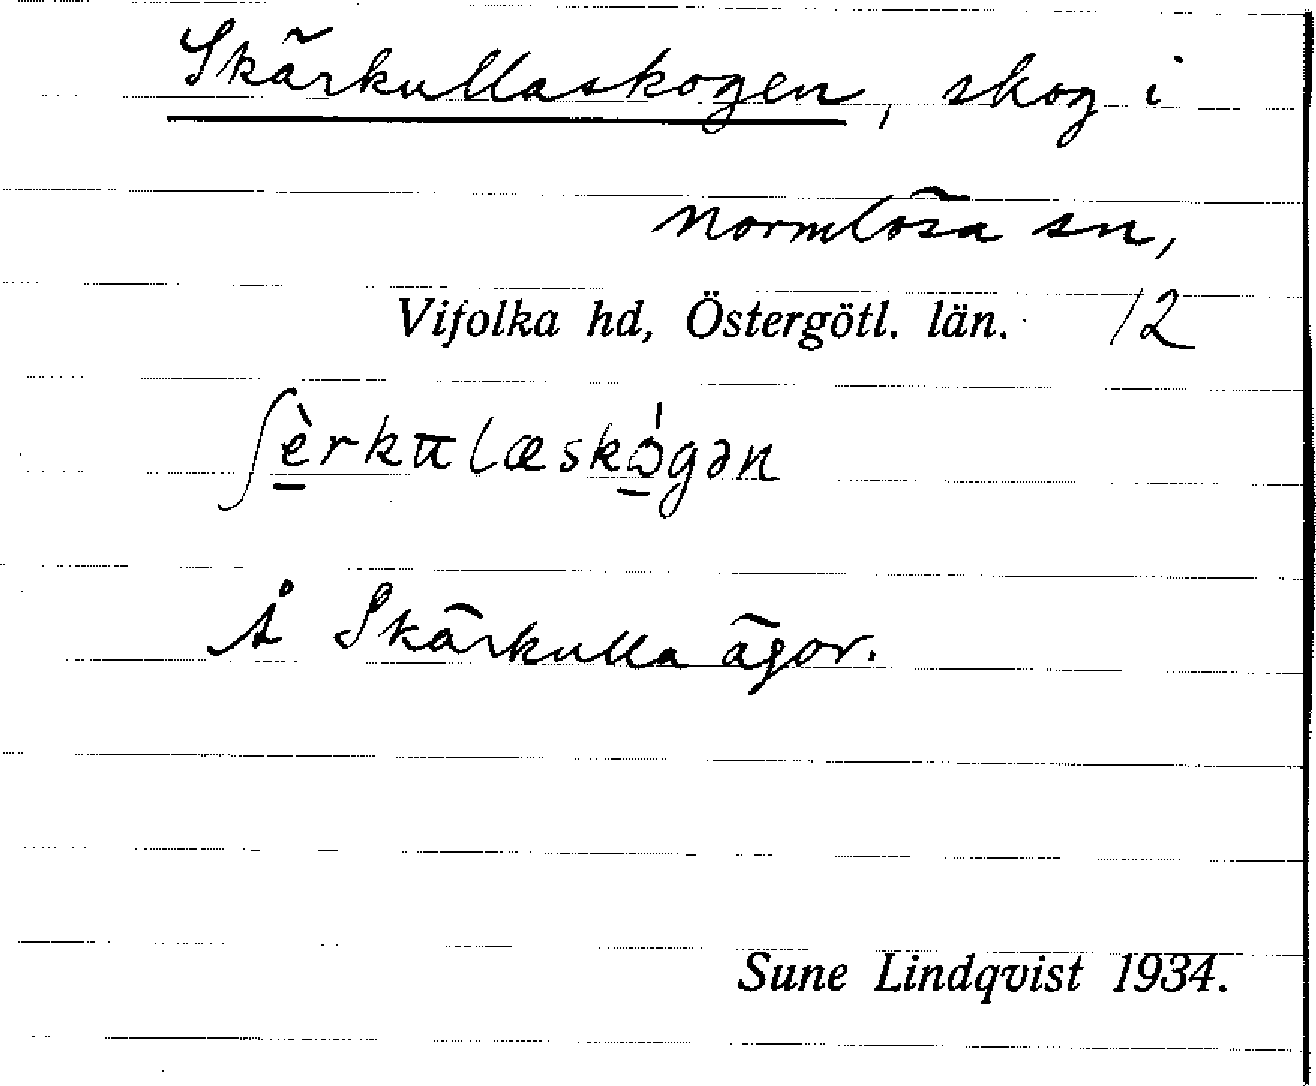 Skärkullaskogen, skog i
Normlösa sn,
Vifolka hd, Östergötl. län. 12
ʃè̱rkᴨlæskɔ̱́gən
Å Skärkulla ägor.
Sune Lindqvist 1934.